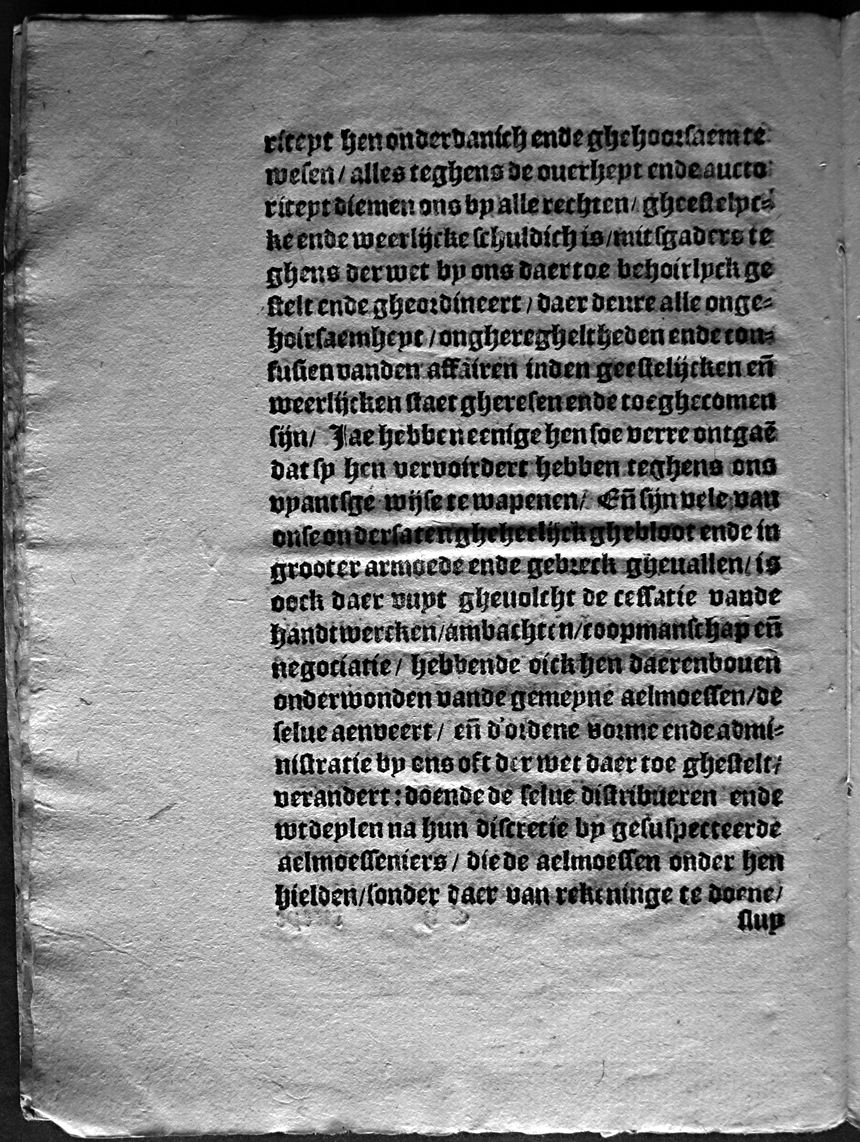 riteyt hen onderdanich ende ghehoorsaem te
wesen/ alles teghens de ouerheyt ende aucto
riteyt diemen ons by alle rechten/ gheestelyc⸗
ke ende weerlijcke schuldich is/mitsgaders te
ghens der wet by ons daer toe behoirlyck ge
stelt ende gheordineert/ daer deure alle onge⸗
hoirsaemheyt/ ongheregheltheden ende con⸗
fusien vanden affairen inden geestelijcken eñ
weerlijcken staet gheresen ende toeghecomen
sijn/ Jae hebben eenige hen soe verre ontgaẽ
dat sy hen vervoirdert hebben teghens ons
vyantsge wijse te wapenen/ Eñ sijn vele van
onse ondersaten gheheelijck ghebloot ende in
grooter armoede ende gebreck gheuallen/ is
oock daer vuyt gheuolcht de cessatie vande
handtwercken/ambachten/coopmanschap eñ
negociatie/ hebbende oick hen daerenbouen
onderwonden vande gemeyne aelmoessen/de
selue aenveert/ eñ d'ordene vorme ende admi⸗
nistratie by ons oft der wet daer toe ghestelt/
verandert: doende de selue distribueren ende
wtdeylen na hun discretie by gesuspecteerde
aelmoesseniers/ die de aelmoessen onder hen
hielden/sonder daer van rekeninge te doene/
sluy